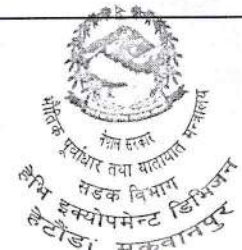 नेपाल सरकार
भौतिक पूर्वाधार तथा यातायात मन्त्रालय
सडक विभाग
हेभि इक्योपमेन्ट डिभिजन
हेटौंडा, मकवानपुर